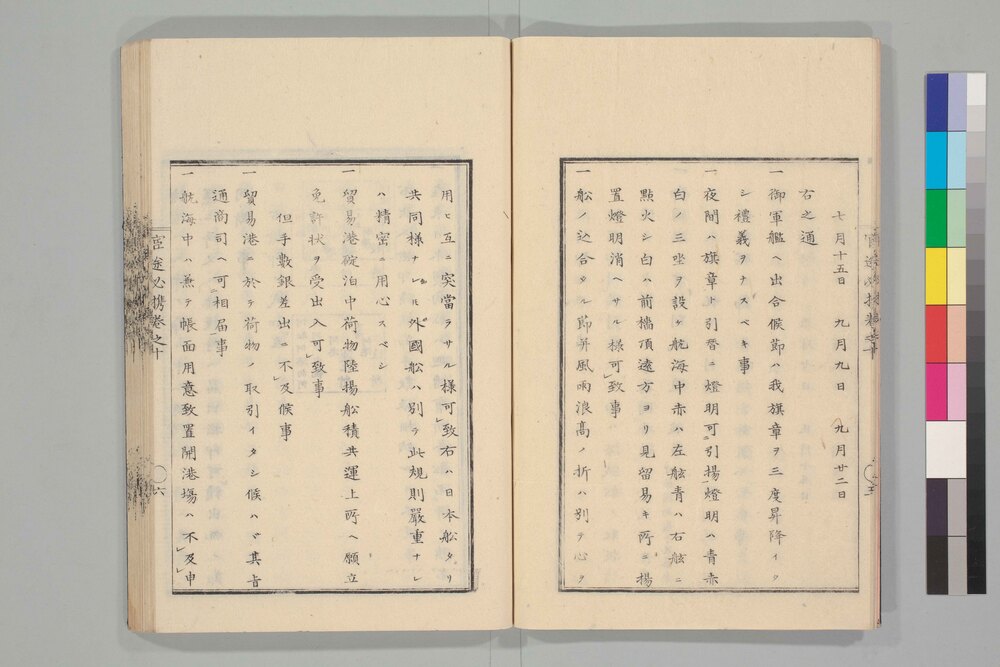 七月十五日 九月九日 九月廿二日
右之通
一御軍艦ヘ出合候節ハ我旗章ヲ三度昇降イタ
シ禮義ヲナスベキ事
一夜間ハ旗章ト引替ニ燈明可引揚燈明ハ青赤
白ノ三坐ヲ設ケ航海中赤ハ左舷青ハ右舷ニ
點火シ白ハ前檣頂遠方ヨリ見留易キ所ニ揚
置燈明消ヘサル樣可致事
一船ノ込合タル節并風雨浪高ノ折ハ別テ心ヲ
用ヒ互ニ突當ラサル樣可致右ハ日本船タリ
共同樣ナレ𪜈外國船ハ別テ此規則嚴重ナレ
ハ精密ニ用心スベシ
一貿易港碇泊中荷物陸揚船積共運上所ヘ願立
免許状ヲ受出入可致事
但手數銀差出ニ不及候事
一貿易港ニ於テ荷物ノ取引イタシ候ハヾ其旨
通商司ヘ可相届事
一航海中ハ兼テ帳面用意致置開港場ハ不及申
官途必携卷之十
六